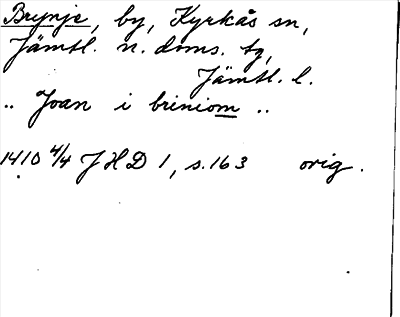 Brynje, by, Kyrkås sn,
Jämtl. n. doms. tg,
Jämtl. l.
.. Joan i briniom ..
1410 4/4 J H D 1, s. 163 orig.